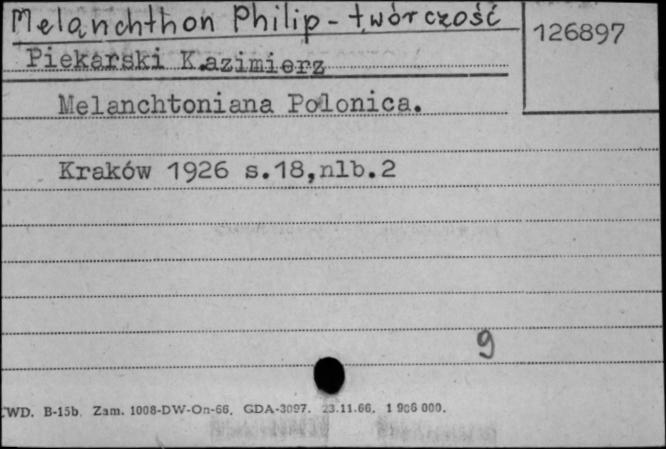 Melanchthon Philip - twórczość
126897
Piekarski Kazimierz
Melanchtoniana Polonica.
Kraków 1926 s.18,nlb.2
9
WD. B-15b. Zam. 1008-DW-On-66. GDA-3097. 23.11.66. 1 906 000.